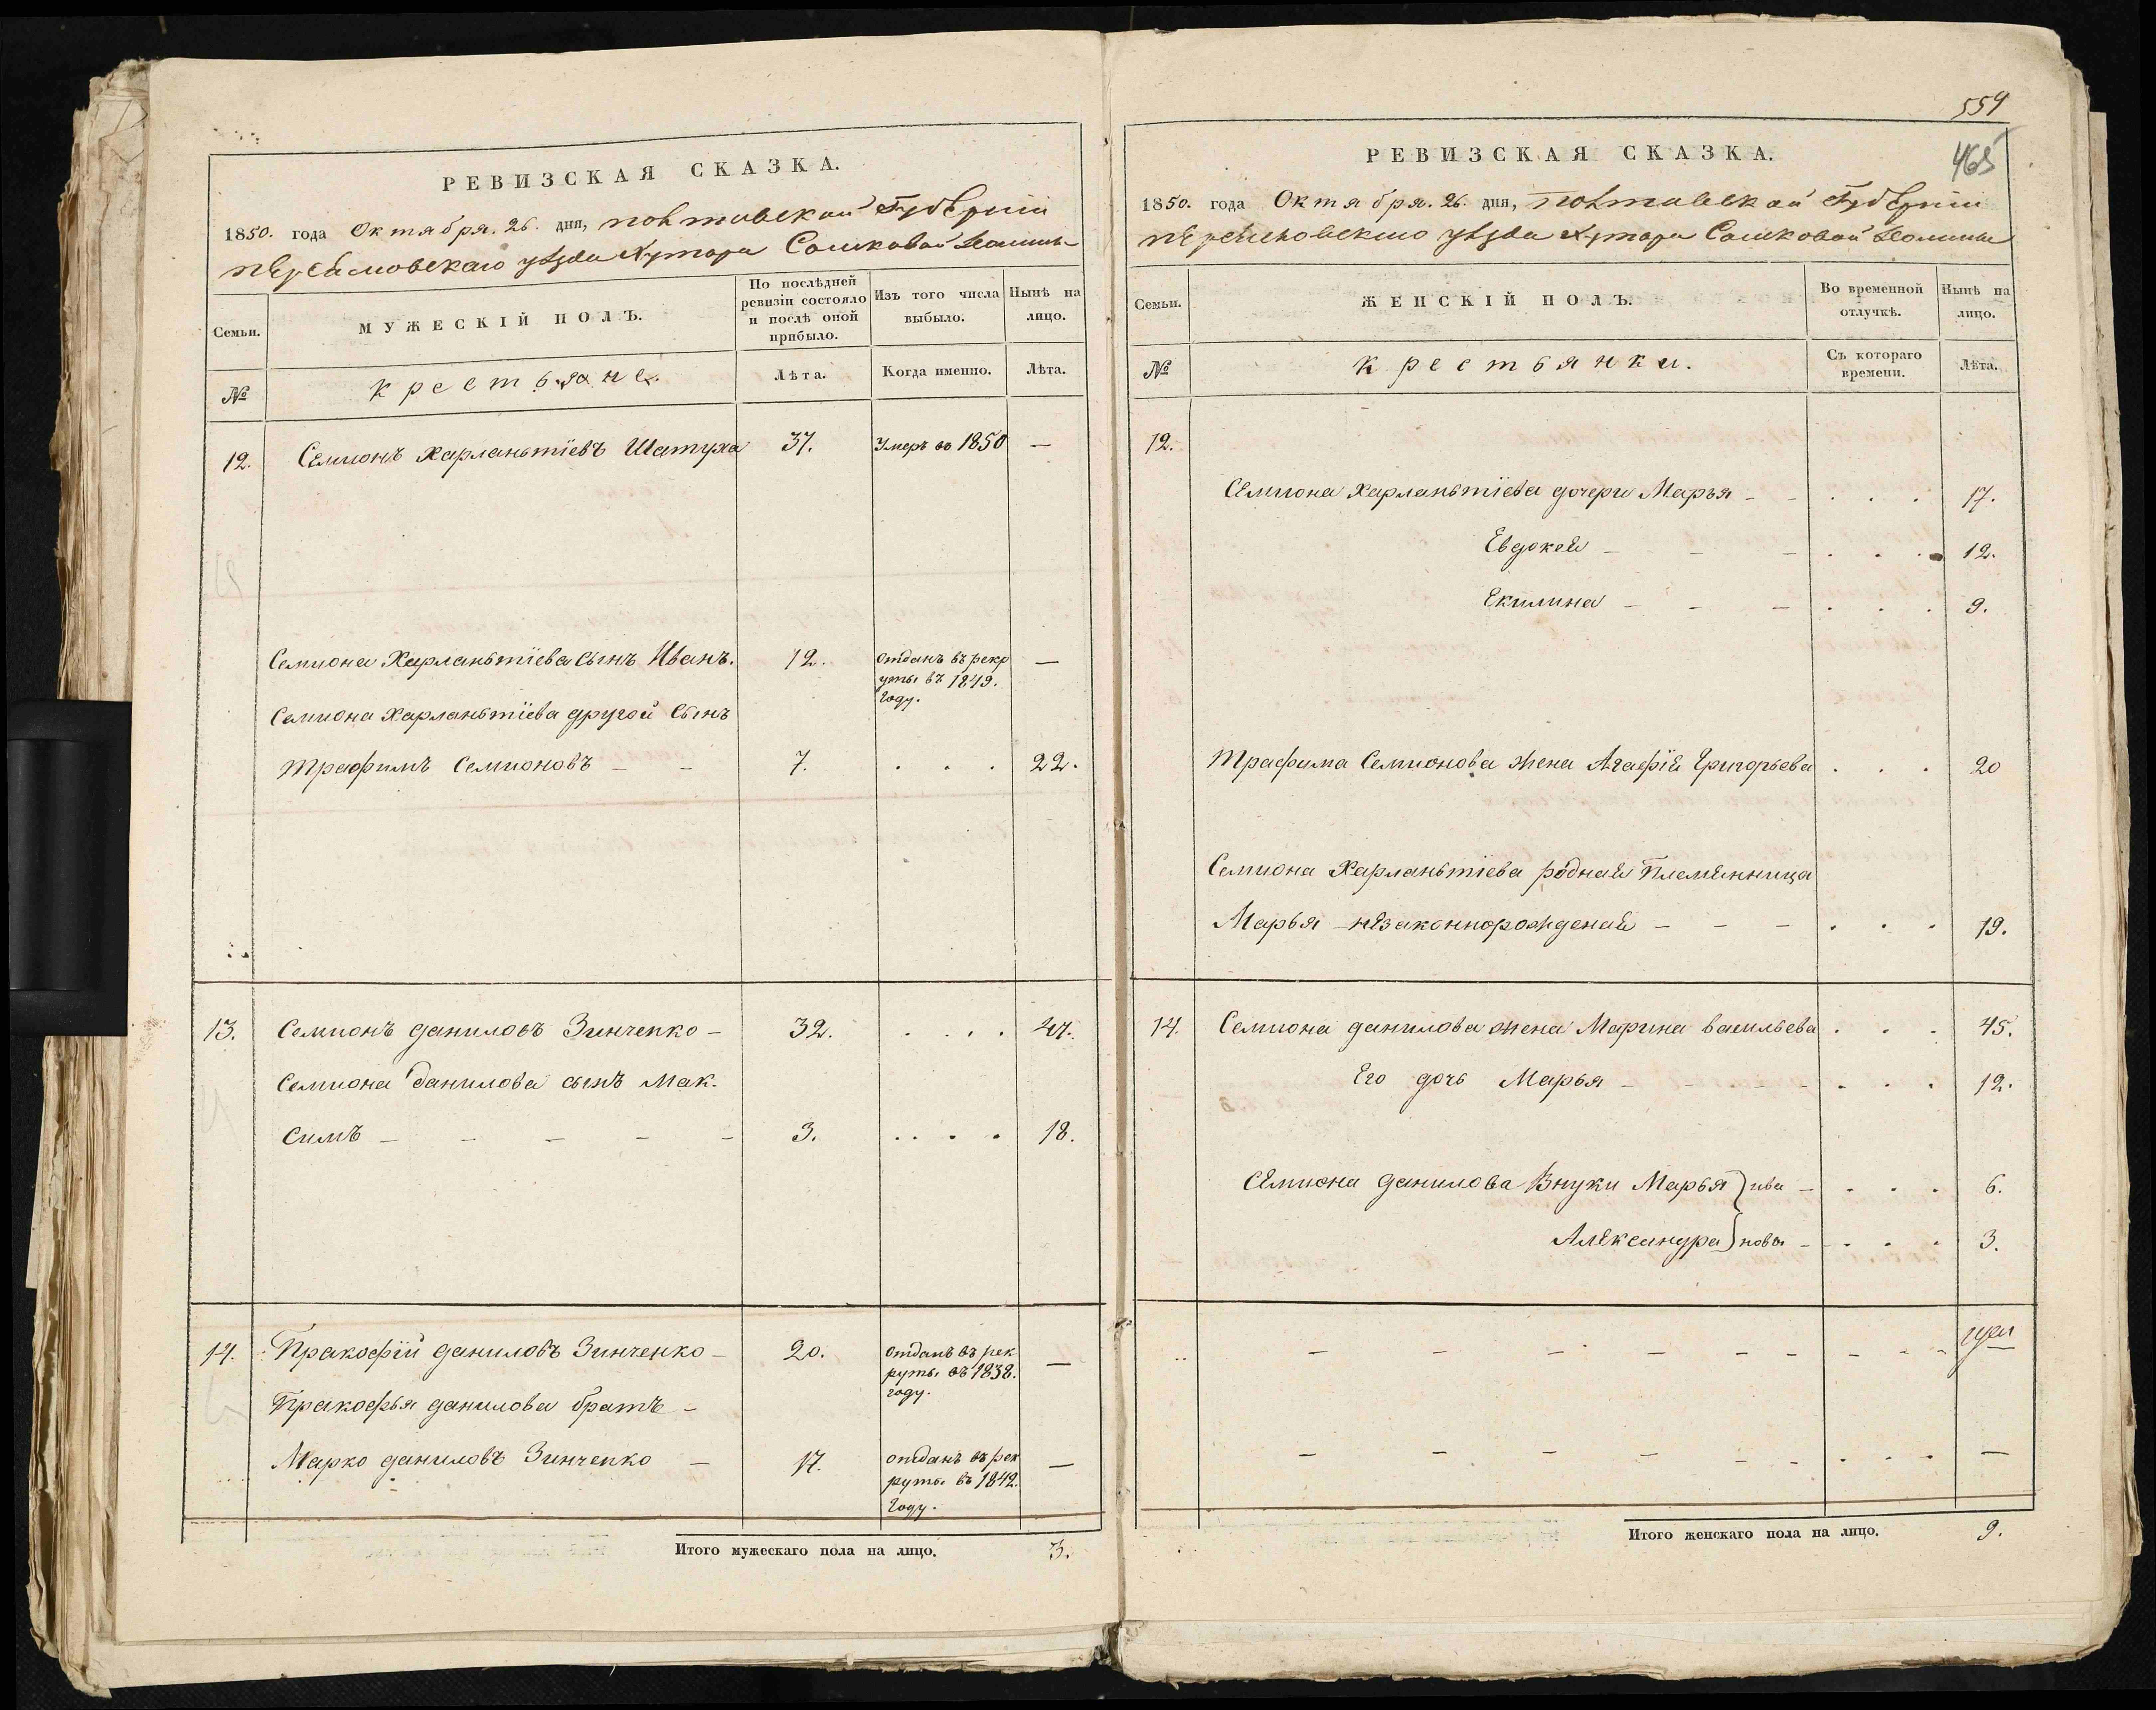 РЕВИЗСКАЯ СКАЗКА.
1850. года Октября. 26. дня, полтавской Губернии
переяславскаго уѣзда Хутора Сошковой Долины
Семьи.
МУЖЕСКІЙ ПОЛЪ.
По послѣдней ревизіи состояло и послѣ оной прибыло.
Изъ того числа выбыло.
Нынѣ на лицо.
№
крестьяне.
Лѣта.
Когда именно.
Лѣта.
12. Семионъ Харланьтіевъ Шатуха 37. Умеръ въ 1850 —
Семиона Харланьтіева сынъ Иванъ. 12. отданъ въ рекр —
уты въ 1849.
году.
Семиона Харланьтіева другой сынъ
Трафимъ Семионовъ — — 7. . . . 22.
13. Семионъ даниловъ Зинченко — 32. . . . . 47.
Семиона данилова сынъ Мак.
симъ — — — — — 3. . . . . 18.
14. Пракофій даниловъ Зинченко — 20. отданъ въ рек —
руты въ 1838.
году.
Пракофья данилова братъ —
Марко даниловъ Зинченко — 17. отданъ въ рек —
руты въ 1842.
году.
Итого мужескаго пола на лицо. 3.
559
465
РЕВИЗСКАЯ СКАЗКА.
1850. года Октября. 26. дня, полтавской Губернии
переяславскаго уѣзда Хутора Сошковой Долины
Семьи.
ЖЕНСКІЙ ПОЛЪ.
Во временной отлучкѣ.
Нынѣ на лицо.
№
крестьянки.
Съ котораго времени.
Лѣта.
12.
Семиона Харланьтіева дочери Марья — — . . . 17.
Евдокея — — — . . . 12.
Екилина — — — . . . 9.
Трафима Семионова жена Агафія Григорьева . . . 20
Семиона Харланьтіева родная Племянница
Марья незаконнорожденая — — — . . . 19.
14. Семиона данилова жена Марина васильева . . . 45.
Его дочь Марья — — — — . . . 12.
Семиона данилова Внуки Марья } ива — . . . 6.
Александра } новы — . . . 3.
— — — — — — — — —
— — — — — — . . . —
Итого женскаго пола на лицо. 9.